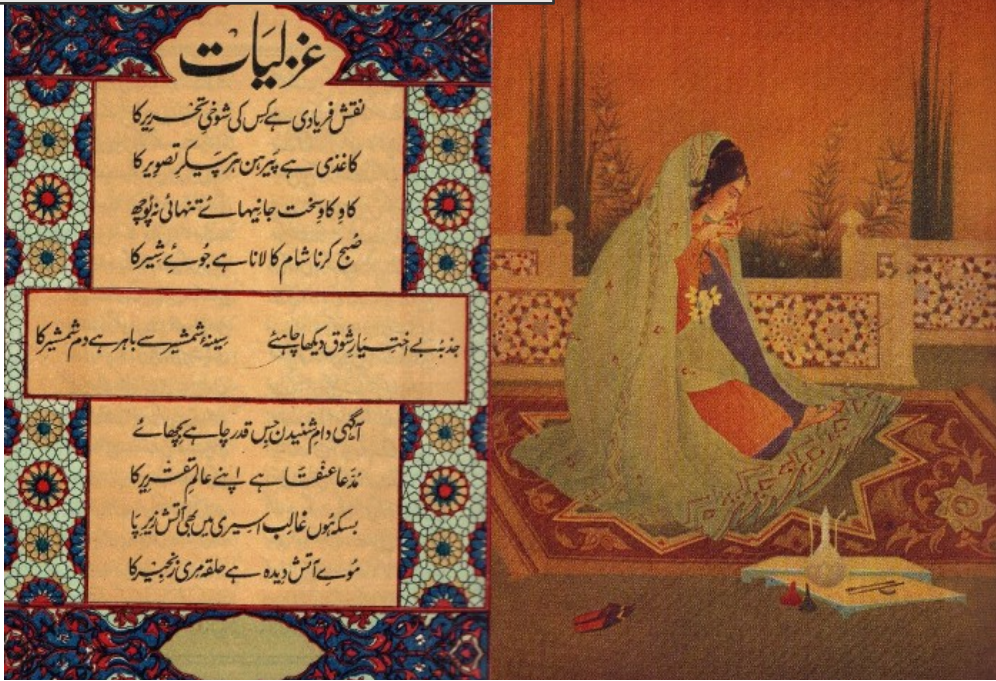 غزلیات
نقش فریادی ہے کس کی شوخیِ تحریر کا
کاغذی ہے پیرہن ہر پیکرِ تصویر کا
کاوِ کاوِ سخت جانیہائے تنہائی نہ پُوچھ
صُبح کرنا شام کا لانا ہے جُوئے شِیر کا
جذبۂ بے اختیارِ شَوق دیکھا چاہئے سینۂ شمشیر سے باہر ہے دم شمشیر کا
آگہی دامِ شنیدن جس قدر چاہے بچھائے
مُدّعا عنقا ہے اپنے عالمِ تقریر کا
بسکہ ہُوں غالب اسیری میں بھی آتش زیرِ پا
مُوے آتش دِیدہ ہے حلقہ مِری زنجیر کا